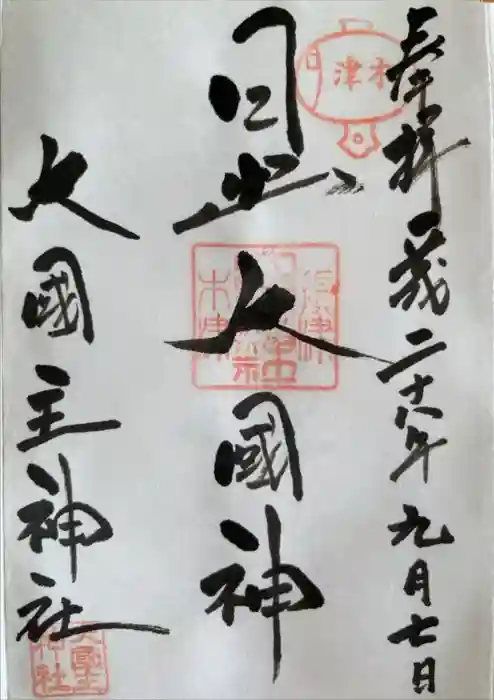 奉拝 平成二十八年九月七日
木津
日出大國神
大國主神社